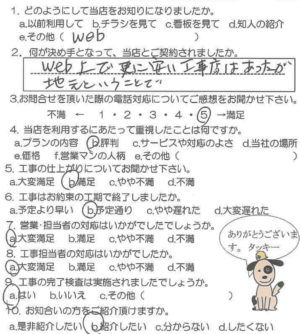 1. どのようにして当店をお知りになりましたか。
a.以前利用して b.チラシを見て c.看板を見て d.知人の紹介
e.その他( web )
2. 何が決め手となって、当店とご契約されましたか。
web上で更に安い工事店はあったが
地元ということで
3.お問合せを頂いた際の電話対応についてご感想をお聞かせ下さい。
不満 ← 1・2・3・4・5 →満足
4. 当店を利用するにあたって重視したことは何ですか。
a.プランの内容 b.評判 c.サービスや対応のよさ d.当社の場所
e.価格 f.営業マンの人柄 e.その他( )
5. 工事の仕上がりについてお聞かせ下さい。
a.大変満足 b.満足 c.やや不満 d.不満
6. 工事はお約束の工期で終了しましたか。
a.予定より早い b.予定通り c.やや遅れた d.大変遅れた
7. 営業・担当者の対応はいかがでしたでしょうか。
a.大変満足 b.満足 c.やや不満 d.不満
8. 工事担当者の対応はいかがでしたか。
a.大変満足 b.満足 c.やや不満 d.不満
9. 工事の完了検査は実施されましたでしょうか。
a.はい b.いいえ c.その他( )
10. お知合いの方をご紹介頂けますか。
a.是非紹介したい b.紹介したい c.分からない d.したくない
ありがとうございま
す。タッキー